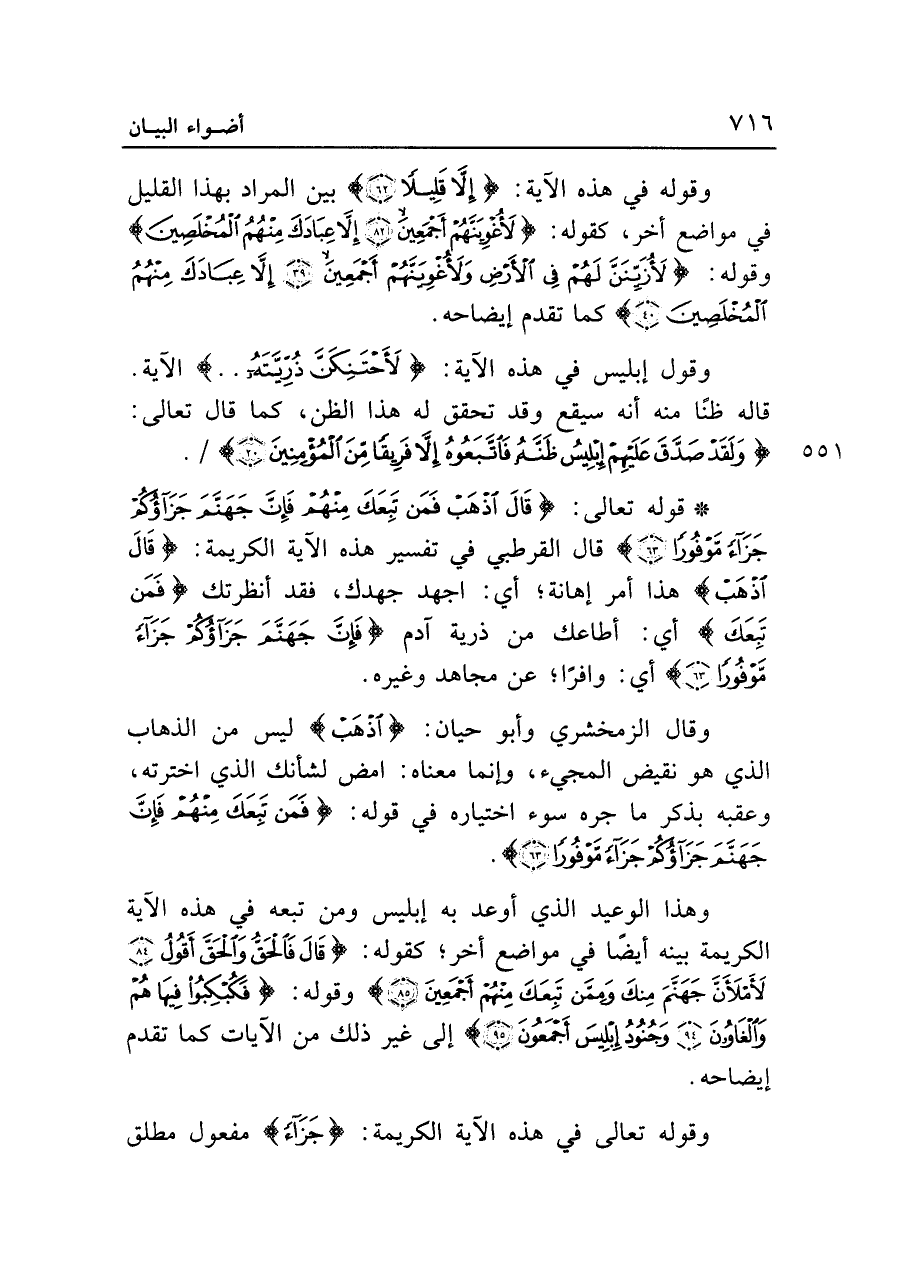 ٧١٦ أضواء البيان
وقوله في هذه الآية: ﴿إِلَّا قَلِيلًا ٦٢﴾ بين المراد بهذا القليل
في مواضع أخر، كقوله: ﴿لَأُغْوِيَنَّهُمْ أَجْمَعِينَ ٨٢ إِلَّا عِبَادَكَ مِنْهُمُ الْمُخْلَصِينَ﴾
وقوله: ﴿لَأُزَيِّنَنَّ لَهُمْ فِي الْأَرْضِ وَلَأُغْوِيَنَّهُمْ أَجْمَعِينَ ٣٩ إِلَّا عِبَادَكَ مِنْهُمُ
الْمُخْلَصِينَ ٤٠﴾ كما تقدم إيضاحه.
وقول إبليس في هذه الآية: ﴿لَأَحْتَنِكَنَّ ذُرِّيَّتَهُ..﴾ الآية.
قاله ظنًا منه أنه سيقع وقد تحقق له هذا الظن، كما قال تعالى:
﴿وَلَقَدْ صَدَّقَ عَلَيْهِمْ إِبْلِيسُ ظَنَّهُ فَاتَّبَعُوهُ إِلَّا فَرِيقًا مِّنَ الْمُؤْمِنِينَ ٢٠﴾ /. ٥٥١
* قوله تعالى: ﴿قَالَ اذْهَبْ فَمَن تَبِعَكَ مِنْهُمْ فَإِنَّ جَهَنَّمَ جَزَآؤُكُمْ
جَزَآءً مَّوْفُورًا ٦٣﴾ قال القرطبي في تفسير هذه الآية الكريمة: ﴿قَالَ
اذْهَبْ﴾ هذا أمر إهانة؛ أي: اجهد جهدك، فقد أنظرتك ﴿فَمَن
تَبِعَكَ﴾ أي: أطاعك من ذرية آدم ﴿فَإِنَّ جَهَنَّمَ جَزَآؤُكُمْ جَزَآءً
مَّوْفُورًا ٦٣﴾ أي: وافرًا؛ عن مجاهد وغيره.
وقال الزمخشري وأبو حيان: ﴿اذْهَبْ﴾ ليس من الذهاب
الذي هو نقيض المجيء، وإنما معناه: امض لشأنك الذي اخترته،
وعقبه بذكر ما جره سوء اختياره في قوله: ﴿فَمَن تَبِعَكَ مِنْهُمْ فَإِنَّ
جَهَنَّمَ جَزَآؤُكُمْ جَزَآءً مَّوْفُورًا ٦٣﴾.
وهذا الوعيد الذي أوعد به إبليس ومن تبعه في هذه الآية
الكريمة بينه أيضًا في مواضع أخر؛ كقوله: ﴿قَالَ فَالْحَقُّ وَالْحَقَّ أَقُولُ ٨٤
لَأَمْلَأَنَّ جَهَنَّمَ مِنكَ وَمِمَّن تَبِعَكَ مِنْهُمْ أَجْمَعِينَ ٨٥﴾ وقوله: ﴿فَكُبْكِبُوا فِيهَا هُمْ
وَالْغَاوُونَ ٩٤ وَجُنُودُ إِبْلِيسَ أَجْمَعُونَ ٩٥﴾ إلى غير ذلك من الآيات كما تقدم
إيضاحه.
وقوله تعالى في هذه الآية الكريمة: ﴿جَزَآءً﴾ مفعول مطلق